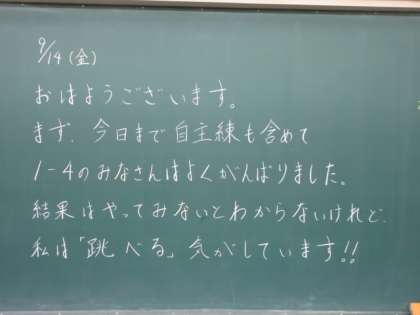 9/14(金)
おはようございます。
まず、今日まで自主練も含めて
1-4のみなさんはよくがんばりました。
結果はやってみないとわからないけれど、
私は「跳べる」気がしています!!